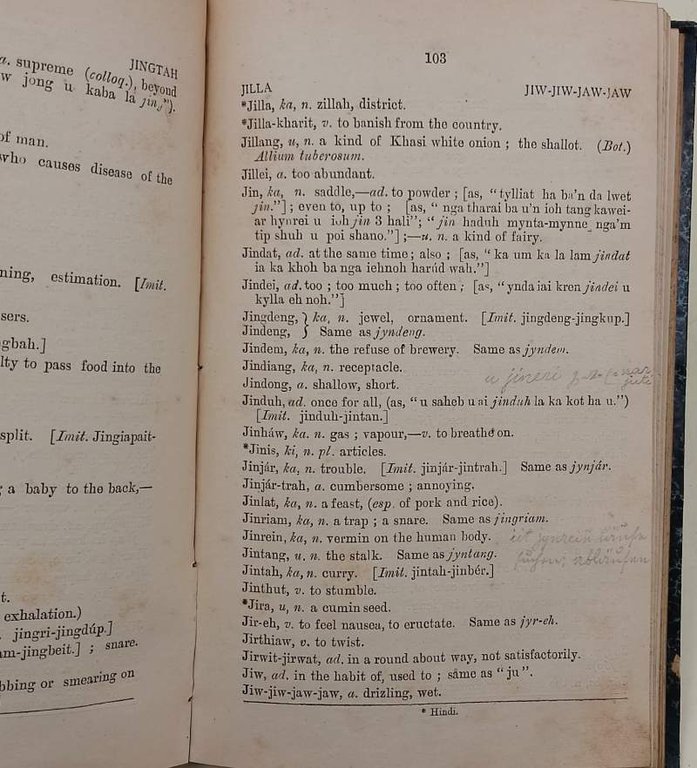 a. supreme (colloq.), beyond
JINGTAH
w jong u kaba la jin,").
of man.
who causes disease of the
ning, estimation. [Imit.
sers.
gbah.]
lty to pass food into the
split. [Imit. Jingiapait-
g a baby to the back,—
t.
exhalation.)
jingri-jingdúp.]
am-jingbeit.] ; snare.
bbing or smearing on
103
JILLA
JIW-JIW-JAW-JAW
*Jilla, ka, n. zillah, district.
*Jilla-kharit, v. to banish from the country.
Jillang, u, n. a kind of Khasi white onion ; the shallot. (Bot.)
Allium tuberosum.
Jillei, a. too abundant.
Jin, ka, n. saddle,—ad. to powder ; [as, " tylliat ha ba'n da lwet
jin."] ; even to, up to ; [as, " nga tharai ba u'n ioh tang kawei-
ar hynrei u ioh jin 3 hali"; "jin haduh mynta-mynne nga'm
tip shuh u poi shano."] ;—u. n. a kind of fairy.
Jindat, ad. at the same time ; also ; [as, " ka um ka la lam jindat
ia ka khoh ba nga iehnoh harúd wah."]
Jindei, ad. too ; too much ; too often ; [as, "ynda iai kren jindei u
kylla eh noh."]
Jingdeng, } ka, n. jewel, ornament. [Imit. jingdeng-jingkup.]
Jindeng, } Same as jyndeng.
Jindem, ka, n. the refuse of brewery. Same as jyndem.
Jindiang, ka, n. receptacle.
Jindong, a. shallow, short.
Jinduh, ad. once for all, (as, " u saheb u ai jinduh la ka kot ha u.")
[Imit. jinduh-jintan.]
Jinháw, ka. n. gas ; vapour,—v. to breathe on.
*Jinis, ki, n. pl. articles.
Jinjár, ka, n. trouble. [Imit. jinjár-jintrah.] Same as jynjár.
Jinjár-trah, a. cumbersome ; annoying.
Jinlat, ka, n. a feast, (esp. of pork and rice).
Jinriam, ka, n. a trap ; a snare. Same as jingriam.
Jinrein, ka, n. vermin on the human body.
Jintang, u. n. the stalk. Same as jyntang.
Jintah, ka, n. curry. [Imit. jintah-jinbér.]
Jinthut, v. to stumble.
*Jira, u, n. a cumin seed.
Jir-eh, v. to feel nausea, to eructate. Same as jyr-eh.
Jirthiaw, v. to twist.
Jirwit-jirwat, ad. in a round about way, not satisfactorily.
Jiw, ad. in the habit of, used to ; same as " ju ".
Jiw-jiw-jaw-jaw, a. drizling, wet.
* Hindi.